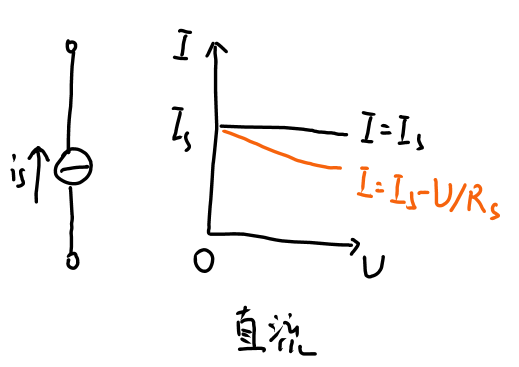 I
Is
I=Is
is
I=Is-U/Rs
O
U
直流